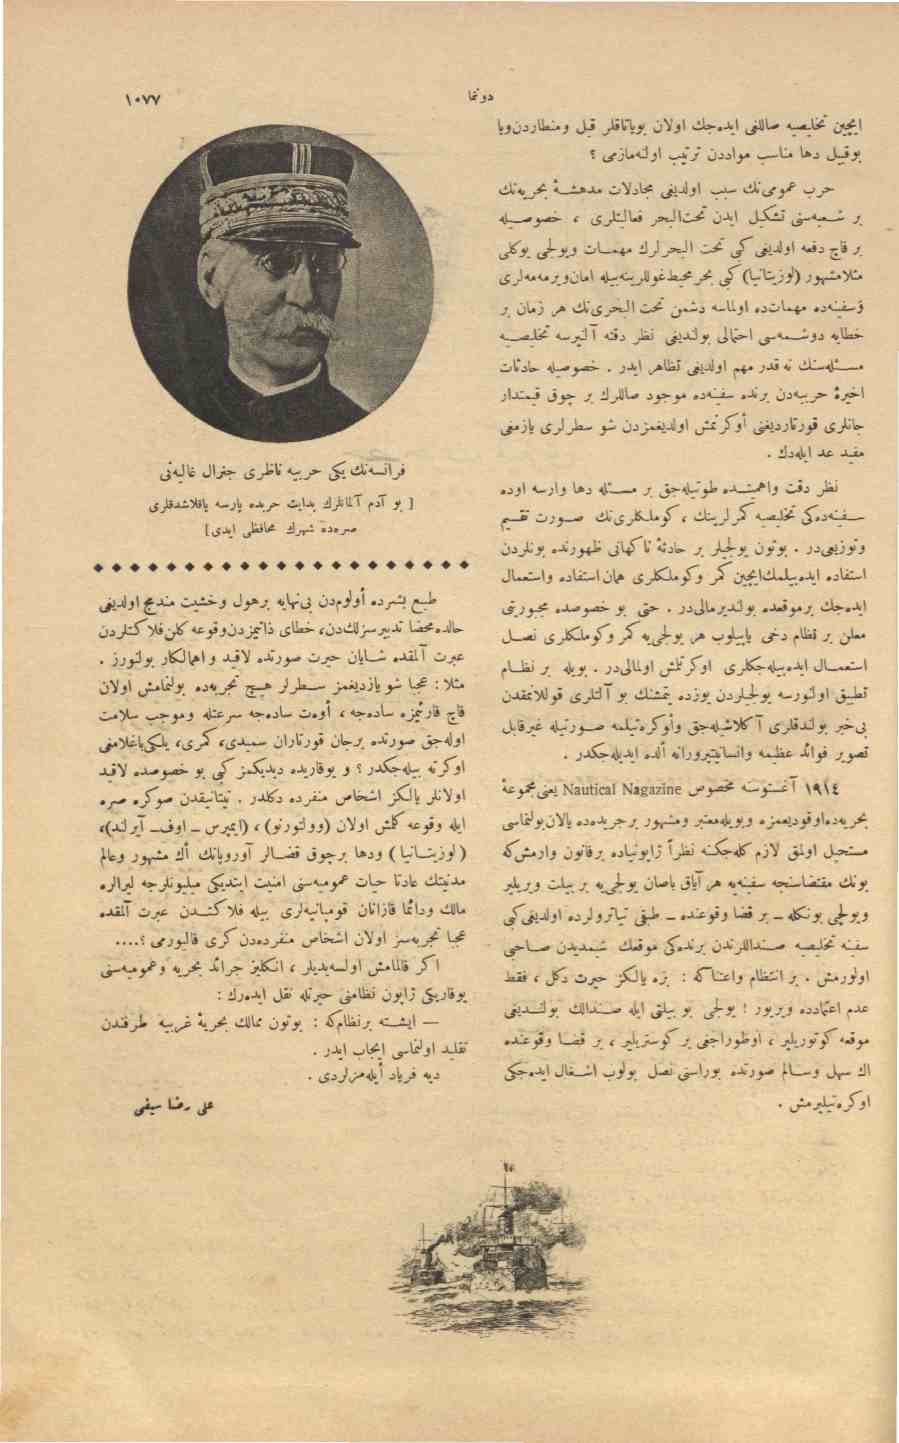 دوننما
١٠٧٧
ایچین تخلیصیه صاللغی ایده‌جك اولان بویاتاقلر قیل ومنطاردن‌ویا
بوقبیل دها مناسب مواددن ترتیب اولنه‌مازمی ؟
حرب عمومی‌نك سبب اولدیغی مجادلات مدهشۀ بحریه‌نك
بر شعبه‌سنی تشكیل ایدن تحت‌البحر فعالیتلری ، خصوصیله
بر قاچ دفعه اولدیغی كبی تحت البحرلرك مهمات ویولجی یوكلی
مثلامشهور (لوزیتانیا) كبی بحر محیط‌غوللرینه‌بیله امان‌ویرمه‌مه‌لری
وسفینه‌ده مهمات‌ده اولماسه دشمن تحت البحری‌نك هر زمان بر
خطایه دوشمه‌سی احتمالی بولندیغی نظر دقته آلنیرسه تخلیصیه
مسئله‌سنك نه قدر مهم اولدیغی تظاهر ایدر . خصوصیله حادثات
اخیرۀ حربیه‌دن برنده سفینه‌ده موجود صاللرك بر چوق قیمتدار
جانلری قورتاردیغنی أوكرنمش اولدیغمزدن شو سطرلری یازمغی
مفید عد ایله‌دك .
نظر دقت واهمیتده طوتیله‌جق بر مسئله دها وارسه اوده
سفینه‌ده‌كی تخلیصیه كمرلرینك ، كوملكلری‌نك صورت تقسیم
وتوزیعی‌در . بوتون یولجیلر بر حادثۀ ناكهانی ظهورنده بونلردن
استفاده ایده‌بیلمك‌ایچین كمر وكوملكلری همان استفاده واستعمال
ایده‌جك برموقعده بولندیرمالی‌در . حتی بو خصوصده مجبوریتی
معلن بر نظام دخی یاپیلوب هر یولجی‌یه كمر وكوملكلری نصل
استعمال ایده‌بیله‌جكلری اوكرتلمش اولمالی‌در . بویله بر نظام
تطبیق اولنورسه یولجیلردن یوزده یتمشنك بو آلتلری قوللانمقدن
بی‌خبر بولندقلری آكلاشیله‌جق وأوكره‌تیلمه صورتیله غیرقابل
تصویر فوائد عظیمه وانسانیتپرورانه ألده ایدیله‌جكدر .
١٩١٤ آغستوسنه مخصوص Nautical Nagazine یعنی مجموعۀ
بحریه‌ده‌اوقودیغمزه وبویله‌معتبر ومشهور برجریده‌ده یالان‌بولنماسی
مستحیل اولمق لازم كله‌جكنه نظراً ژاپونیاده برقانون وارمش‌كه
بونك مقتضاسنجه سفینه‌یه هر آیاق باصان یولجی‌یه بر بیلت ویریلیر
ویولجی بونكله ـ بر قضا وقوعنده ـ طبقی تیاترولرده اولدیغی‌كبی
سفینه تخلیصیه صنداللرندن برنده‌كی موقعك شیمدیدن صاحبی
اولورمش . بر انتظام واعتناكه : بزه یالكز حیرت دكل ، فقط
عدم اعتمادده ویریور ! یولجی بو بیلتی ایله صندالك بولندیغی
موقعه كوتوریلیر ، اوطوراجغی یر كوستریلیر ، بر قضا وقوعنده
اك سهل وسالم صورتده بوراسنی نصل بولوب اشغال ایده‌جكی
اوكره‌تیلیرمش .
فرانسه‌نك یكی حربیه ناظری جنرال غالیه‌نی
[ بو آدم آلمانلرك بدایت حربده پارسه یاقلاشدقلری
صره‌ده شهرك محافظی ایدی]
طبع بشرده أولوم‌دن بی‌نهایه برهول وخشیت مندمج اولدیغی
حالده محضا تدبیرسزلك‌دن، خطای ذاتیمزدن‌وقوعه كلن‌فلاكتلردن
عبرت آلمقده شایان حیرت صورتده لاقید واهمالكار بولنورز .
مثلا : عجبا شو یازدیغمز سطرلر هیچ تجربه‌ده بولنمامش اولان
قاچ قارئمزه ساده‌جه ، أوه‌ت ساده‌جه سرعتله وموجب سلامت
اوله‌جق صورتده برجان قورتاران سمیدی، كمری، یلكی‌باغلامغی
اوكرته بیله‌جكدر ؟ و یوقاریده دیدیكمز كبی بو خصوصده لاقید
اولانلر یالكز اشخاص منفرده دكلدر . تیتانیقدن صوكره صره
ایله وقوعه كلمش اولان (وولتورنو) ، (ایمپرس ـ اوف ـ آیرلند)،
(لوزیتانیا) ودها برچوق قضالر آوروپانك أك مشهور وعالم
مدنیتك عادتا حیات عمومیه‌سنی امنیت ایتدیكی میلیونلرجه لیرالره
مالك ودائما قازانان قومپانیه‌لری بیله فلاكتدن عبرت آلمقده
عجبا تجربه‌سز اولان اشخاص منفرده‌دن كری قالیورمی ؟....
اكر قالمامش اولسه‌یدیلر ، انكلیز جرائد بحریه وعمومیه‌سی
یوقاریكی ژاپون نظامنی حیرتله نقل ایده‌رك :
— ایشته برنظام‌كه : بوتون ممالك بحریۀ غربیه طرفندن
تقلید اولنماسی ایجاب ایدر .
دیه فریاد أیله‌مزلردی .
علی رضا سیفی